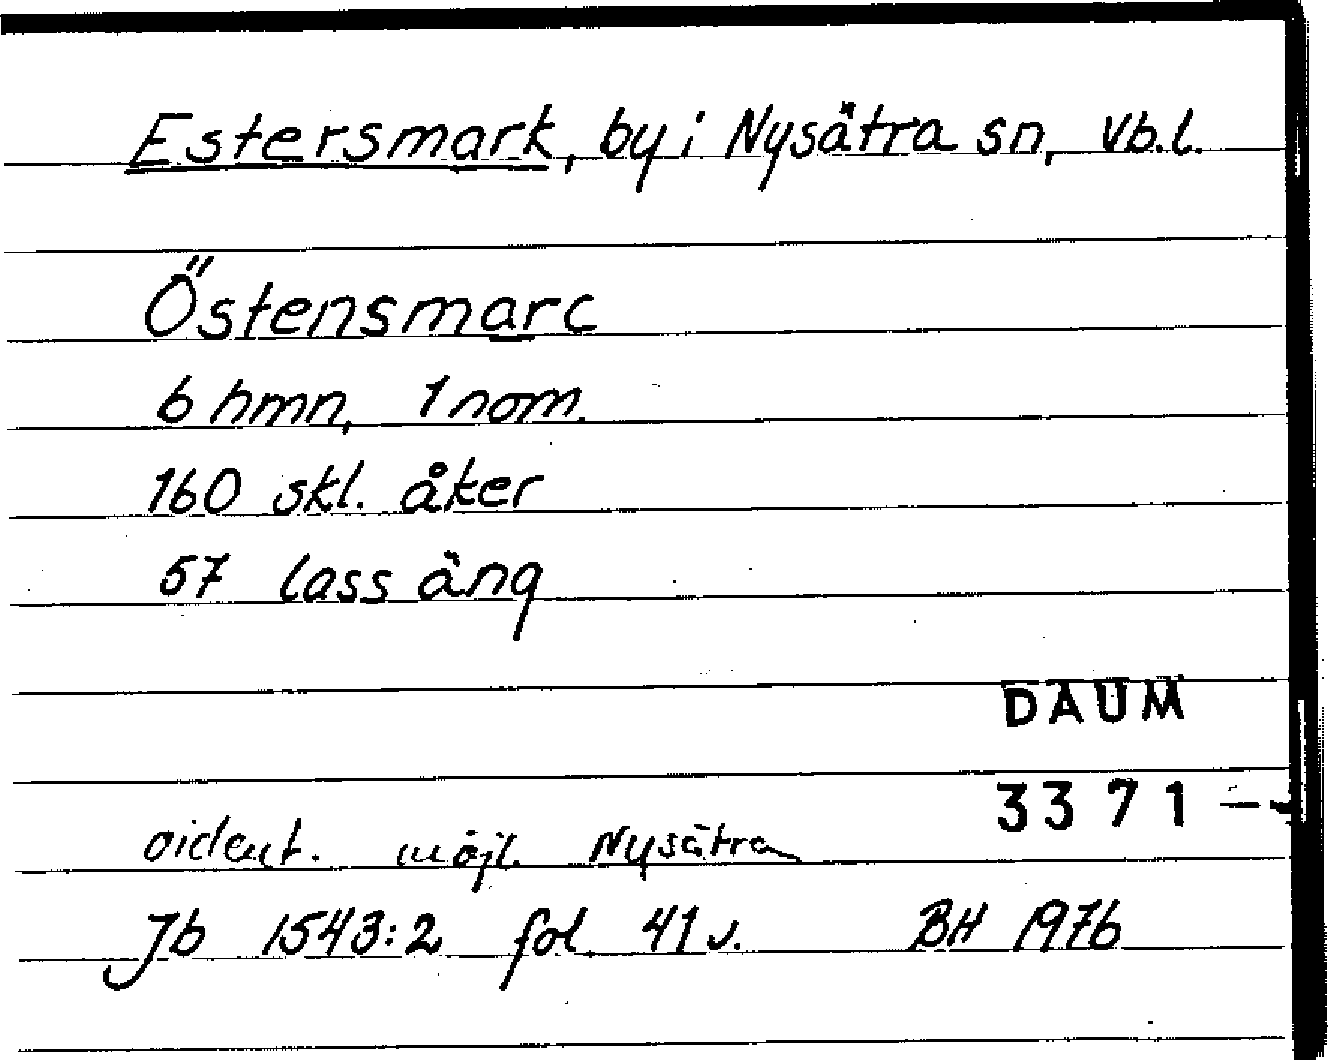 Estersmark, by i Nysätra sn, Vb.l.
Östensmarc
6 hmn, 1 nom.
160 skl. åker
57 lass äng
DAUM
3371
oident. möjl. Nysätra
Jb 1543:2 fol. 41 v. BH 1976